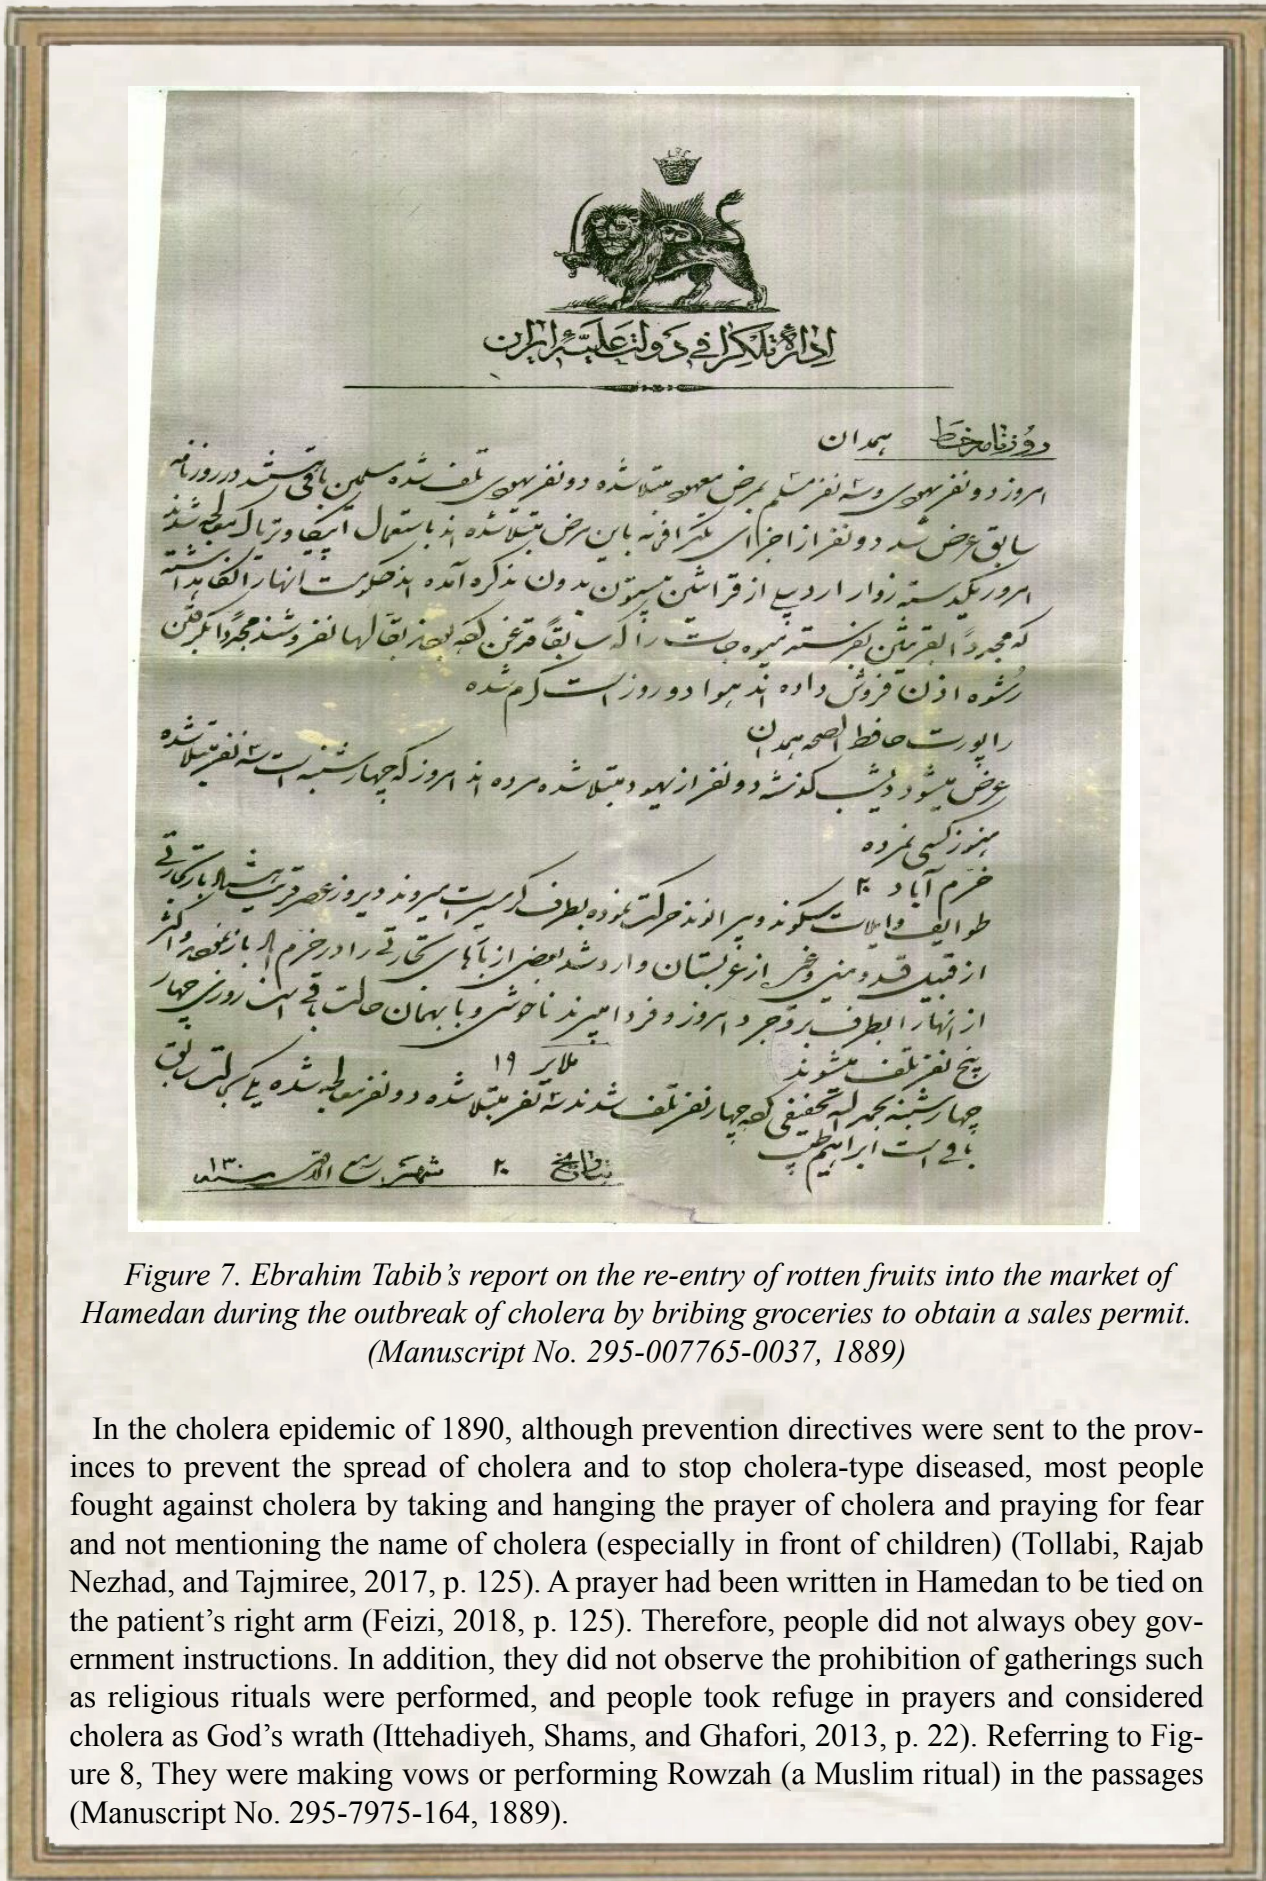 اداره تلگرافی دولت علیه ایران
روزنامه خط همدان
امروز دو نفر یهودی و سه نفر مسلم بمرض معهود مبتلا شده دو نفر یهودی تلف شده مسلمین باقی هستند در روزنامه
سابق عرض شد دو نفر از اجزای تلگرافخانه باین مرض مبتلا شده اند باستعمال و تریاک معالجه شدند
امروز یکدسته زوار اردبیلی از قرانتین بیستون بدون تذکره آمده اند حکومت آنها را نگاهداشته
که مجدداً بقرنتین بفرستد میوه جات را که سابقاً قدغن بقالها نفروشند مجدداً بگرفتن
رشوه اذن فروش داده اند هوا دو روز است گرم شده
راپورت حافظ الصحه همدان
عرض میشود دیشب گذشته دو نفر از یهود مبتلا شده مرده اند امروز که چهارشنبه است سه نفر مبتلا شده
هنوز کسی نمرده
خرم آباد ۲۰
طوایف و ایلات سگوند و بیرانوند حرکت نموده بطرف گرمسیرات میروند دیروز عصر قریب بار تجارتی
از قبیل قند و غیره از عربستان وارد شد بعضی از بارهای تجارتی را در خرم و اکثر
از آنها را بطرف بروجرد امروز و فردا میبرند ناخوشی وبا بهمان حالت باقی است روزی چهار
پنج نفر تلف میشوند
ملایر ۱۹
چهارشنبه بحمدالله تخفیفی چهار نفر تلف شدند سه نفر مبتلا شده دو نفر معالجه شده یکی بحالت سابق
باقی است ابراهیم طبیب
بتاریخ ۲۰ شهر ربیع سنه ۱۳۰
Figure 7. Ebrahim Tabib’s report on the re-entry of rotten fruits into the market of
Hamedan during the outbreak of cholera by bribing groceries to obtain a sales permit.
(Manuscript No. 295-007765-0037, 1889)
In the cholera epidemic of 1890, although prevention directives were sent to the prov-
inces to prevent the spread of cholera and to stop cholera-type diseased, most people
fought against cholera by taking and hanging the prayer of cholera and praying for fear
and not mentioning the name of cholera (especially in front of children) (Tollabi, Rajab
Nezhad, and Tajmiree, 2017, p. 125). A prayer had been written in Hamedan to be tied on
the patient’s right arm (Feizi, 2018, p. 125). Therefore, people did not always obey gov-
ernment instructions. In addition, they did not observe the prohibition of gatherings such
as religious rituals were performed, and people took refuge in prayers and considered
cholera as God’s wrath (Ittehadiyeh, Shams, and Ghafori, 2013, p. 22). Referring to Fig-
ure 8, They were making vows or performing Rowzah (a Muslim ritual) in the passages
(Manuscript No. 295-7975-164, 1889).